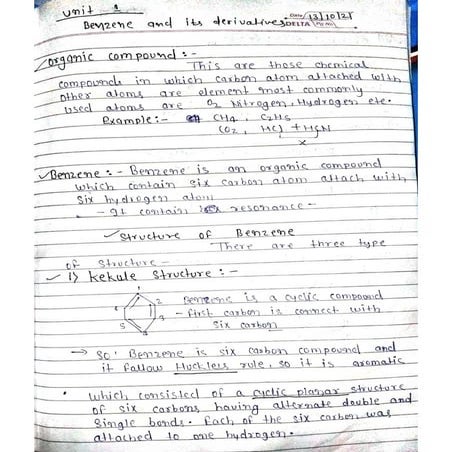 Unit 1
Benzene and its derivatives DELTA 13/10/21
organic compound :-
This are those chemical
compounds in which carbon atom attached with
other atoms are element most commonly
used atoms are O2 Nitrogen, Hydrogen etc.
Example :- CH4, C2H5
CO2, HCl + HCN
x
Benzene :- Benzene is an organic compound
which contain six carbon atom attach with
six hydrogen atom
- It contain resonance -
Structure of Benzene
There are three type
of structure -
1) kekule structure :-
1
2
3
4
5
6
Benzene is a cyclic compound
- first carbon is connect with
six carbon
→ so' Benzene is six carbon compound and
it follow Huckles rule, so it is aromatic
• which consisted of a cyclic planar structure
of six carbons having alternate double and
single bonds. Each of the six carbon was
attached to one hydrogen.